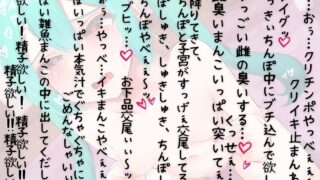 …おぅ…クリチンポやっべぇぇ
クリイキ止まんねぇ
イグッ♡
っきぃちんぽ中にブチ込んで欲
っごい雌の臭いする…♡
くっせぇ…
臭いまんこいっぱい突いてぇ
降りてきて、
んぽと子宮がすっげぇ交尾してる
しき、しゅきしゅき、ちんぽし
ちんぽやべぇぇ〜♡
ブヒッ…♡お下品交尾ぃぃ〜ッ
…やっべ…イキまんこやべぇ
ぱいっぱい本気汁でぐちゃぐちゃに
ごめんなしゃい…
ぱい雑魚まんこの中に出してくだし
子欲しい！精子欲しい！
精子欲しい！！精子欲